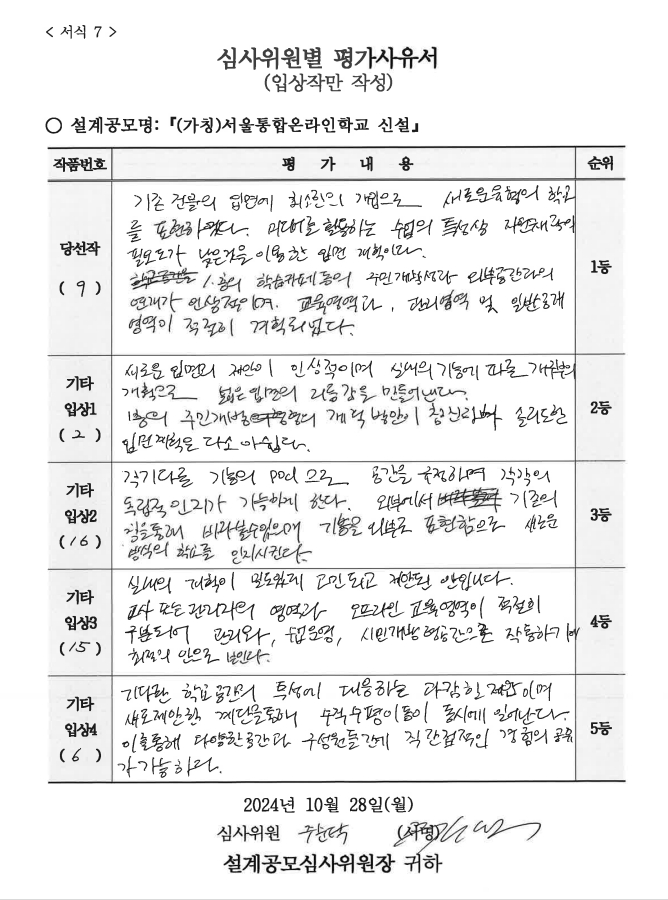 < 서식 7 >
심사위원별 평가사유서
(입상작만 작성)
○ 설계공모명: 『(가칭)서울통합온라인학교 신설』
작품번호 평 가 내 용 순위
당선작
( 9 )
기존 건물의 입면에 최소한의 개입으로 새로운 유형의 학교
를 표현하였다. 미디어를 활용하는 수업의 특성상 자연채광의
필요도가 낮은것을 이용한 입면 계획이다.
1층의 학습카페 등의 주민개방성과 외부공간과의
연계가 인상적이며, 교육영역과, 관리영역 및 일반공개
영역이 적절히 계획되었다.
1등
기타
입상1
( 2 )
새로운 입면의 제안이 인상적이며 실내의 기능에 따른 개구부의
계획으로 넓은 입면의 리듬감을 만들어낸다.
1층의 주민개방 개적 방안이 참신하나 솔리드한
입면계획은 다소 아쉽다.
2등
기타
입상2
( 16 )
각기다른 기능의 pod으로 공간을 규정하며 각각의
독립적 인지가 가능하게 한다. 외부에서 기존의
바라볼수있으며 기능을 외부로 표현함으로 새로운
방식의 학교를 인지시킨다.
3등
기타
입상3
( 15 )
실내의 계획이 밀도있게 고민되고 제안된 안입니다.
교사 또는 관리자의 영역과 오프라인 교육영역이 적절히
구분되어 관리와, 수업운영, 시민개방 작동하기에
최적의 안으로 보인다.
4등
기타
입상4
( 6 )
기다란 학교공간의 특성에 대응하는 과감한 제안이며
새로제안한 계단을통해 수직수평이동이 동시에 일어난다.
이를통해 다양한공간과 구성원들간에 직간접적인 경험의 공유
가 가능하다.
5등
2024년 10월 28일(월)
심사위원 (서명)
설계공모심사위원장 귀하